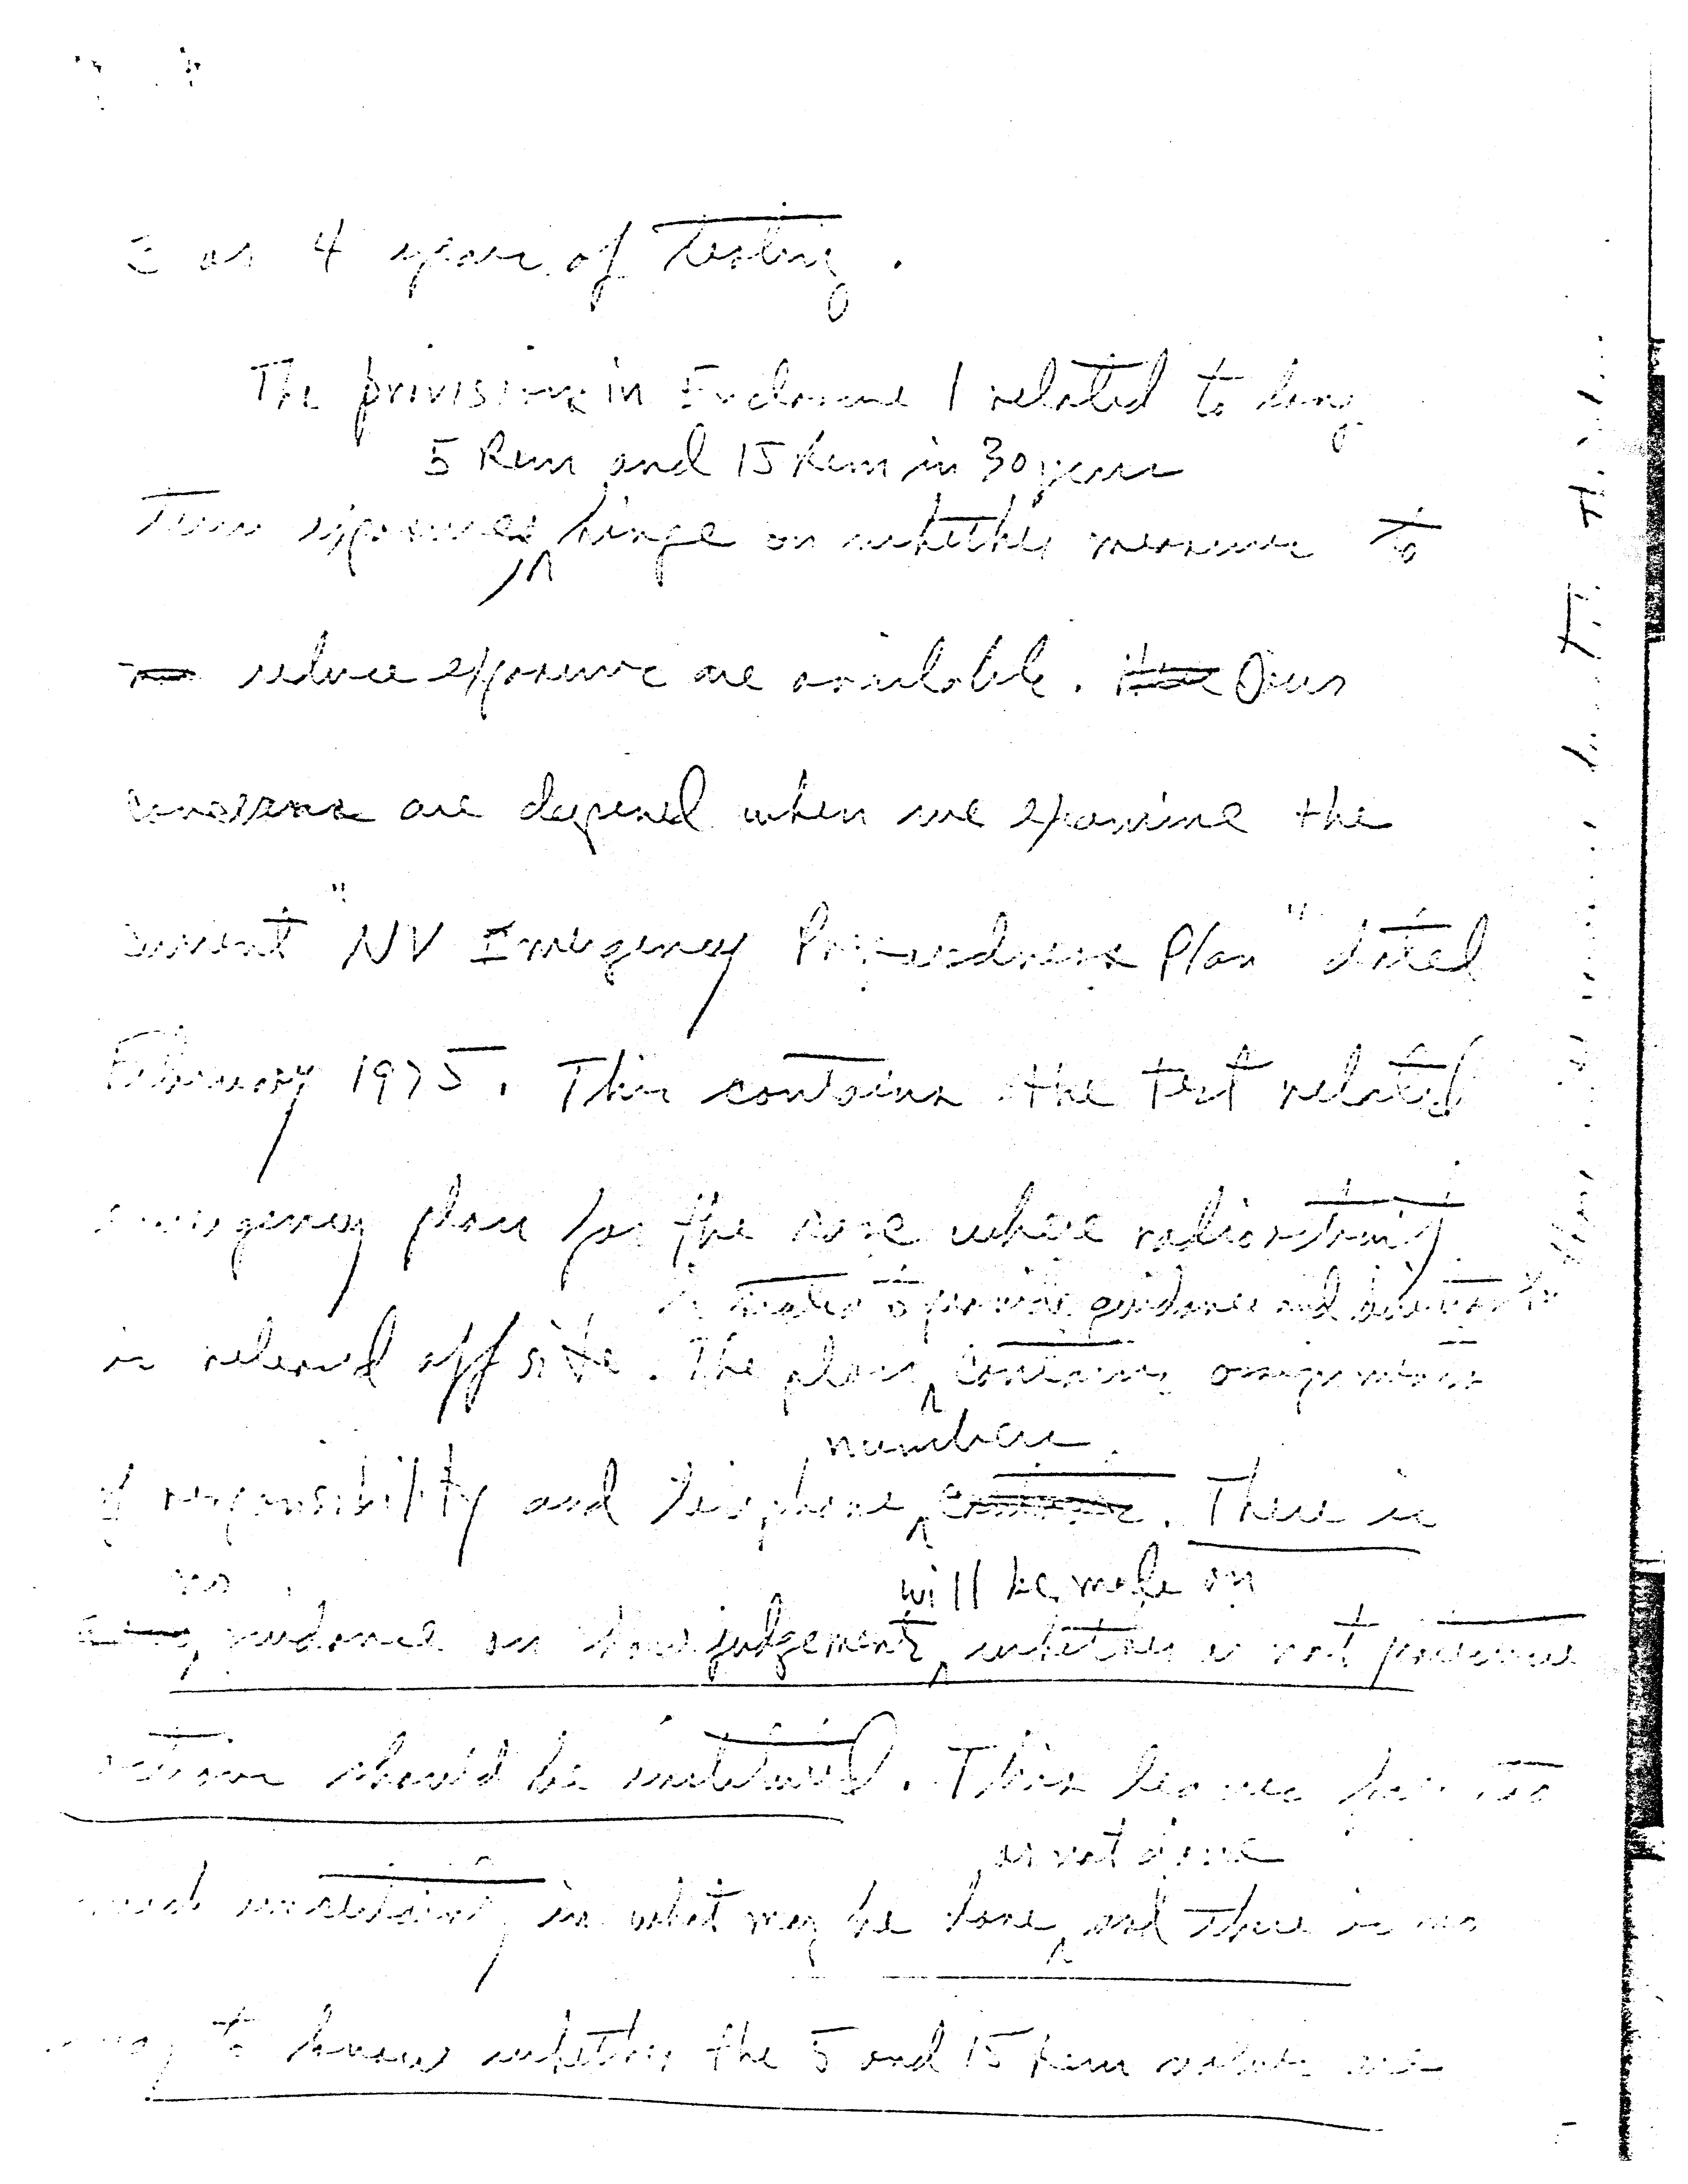 3 or 4 years of testing.
The provisions in Enclosure 1 related to long
5 Rem and 15 Rem in 30 years
term exposures hinge on whether measures to
reduce exposure are available. Our
concerns are depend when we examine the
current "NV Emergency Preparedness Plan" dated
February 1975. This contains the test related
emergency plan for the case where radioactivity
is released offsite. The plan, containing assignments
to provide guidance and direction to
numbers
of responsibility and telephone. There is
no
will be made on
guidance on how judgements whether or not protective
actions should be initiated. This leaves far too
or not done
much uncertainty in what may be done, and there is no
way to know whether the 5 and 15 Rem values are